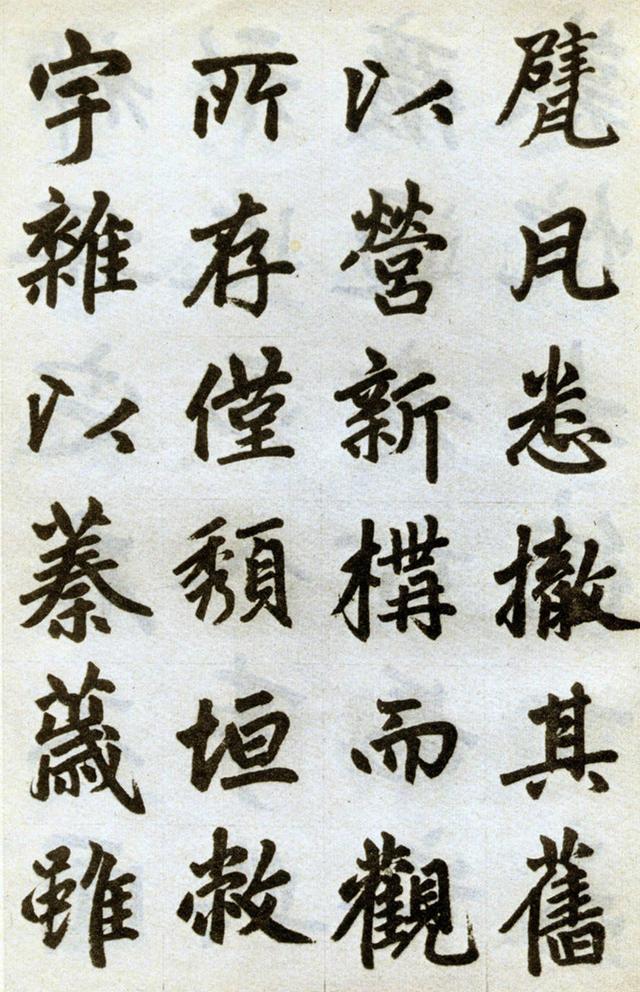 甓瓦悉撤其舊
以營新構而觀
所存僅頹垣敝
宇雜以蓁薉雖